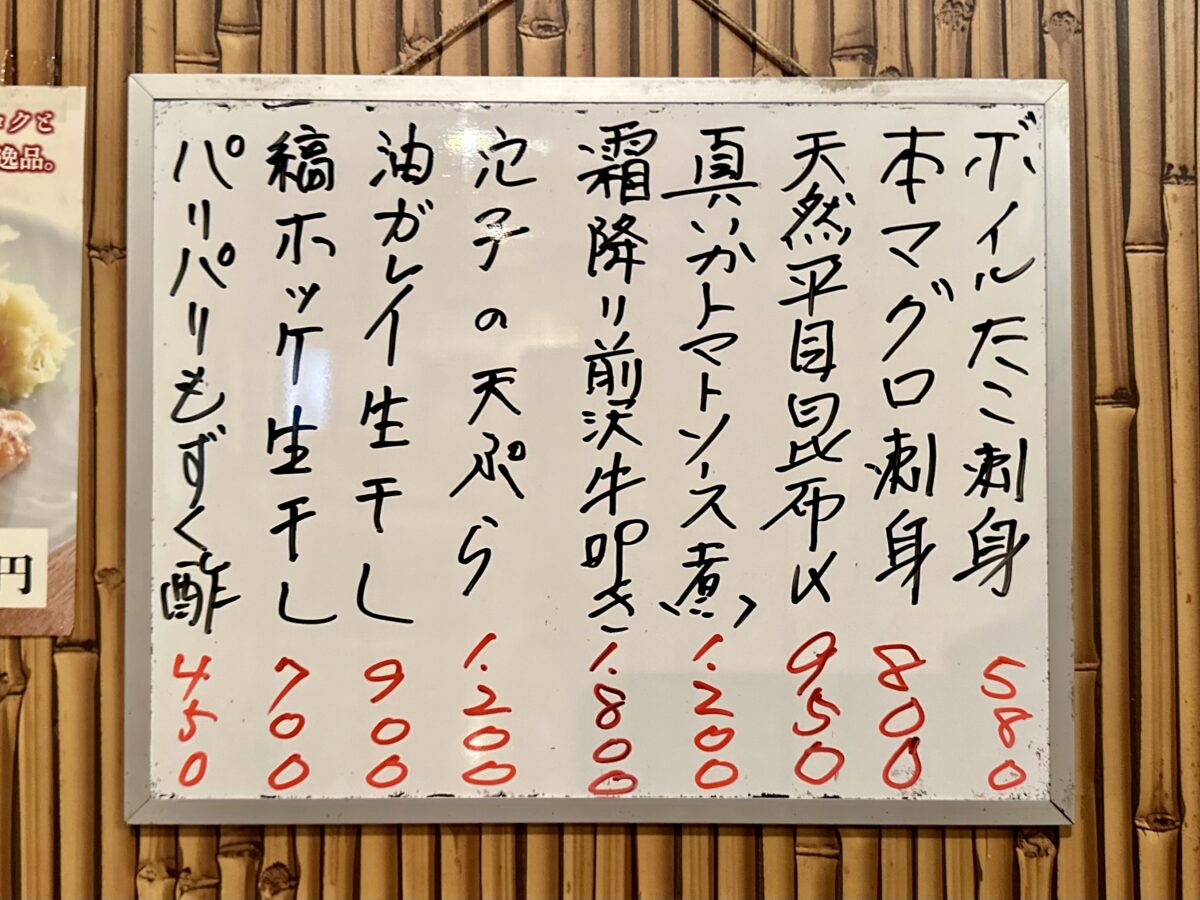 ボイルたこ刺身 580
本マグロ刺身 800
天然平目昆布〆 950
真いかトマトソース煮 1.200
霜降り前沢牛叩き 1.800
穴子の天ぷら 1.200
油ガレイ生干し 900
縞ホッケ生干し 700
パリパリもずく酢 450
コクと
逸品。
円